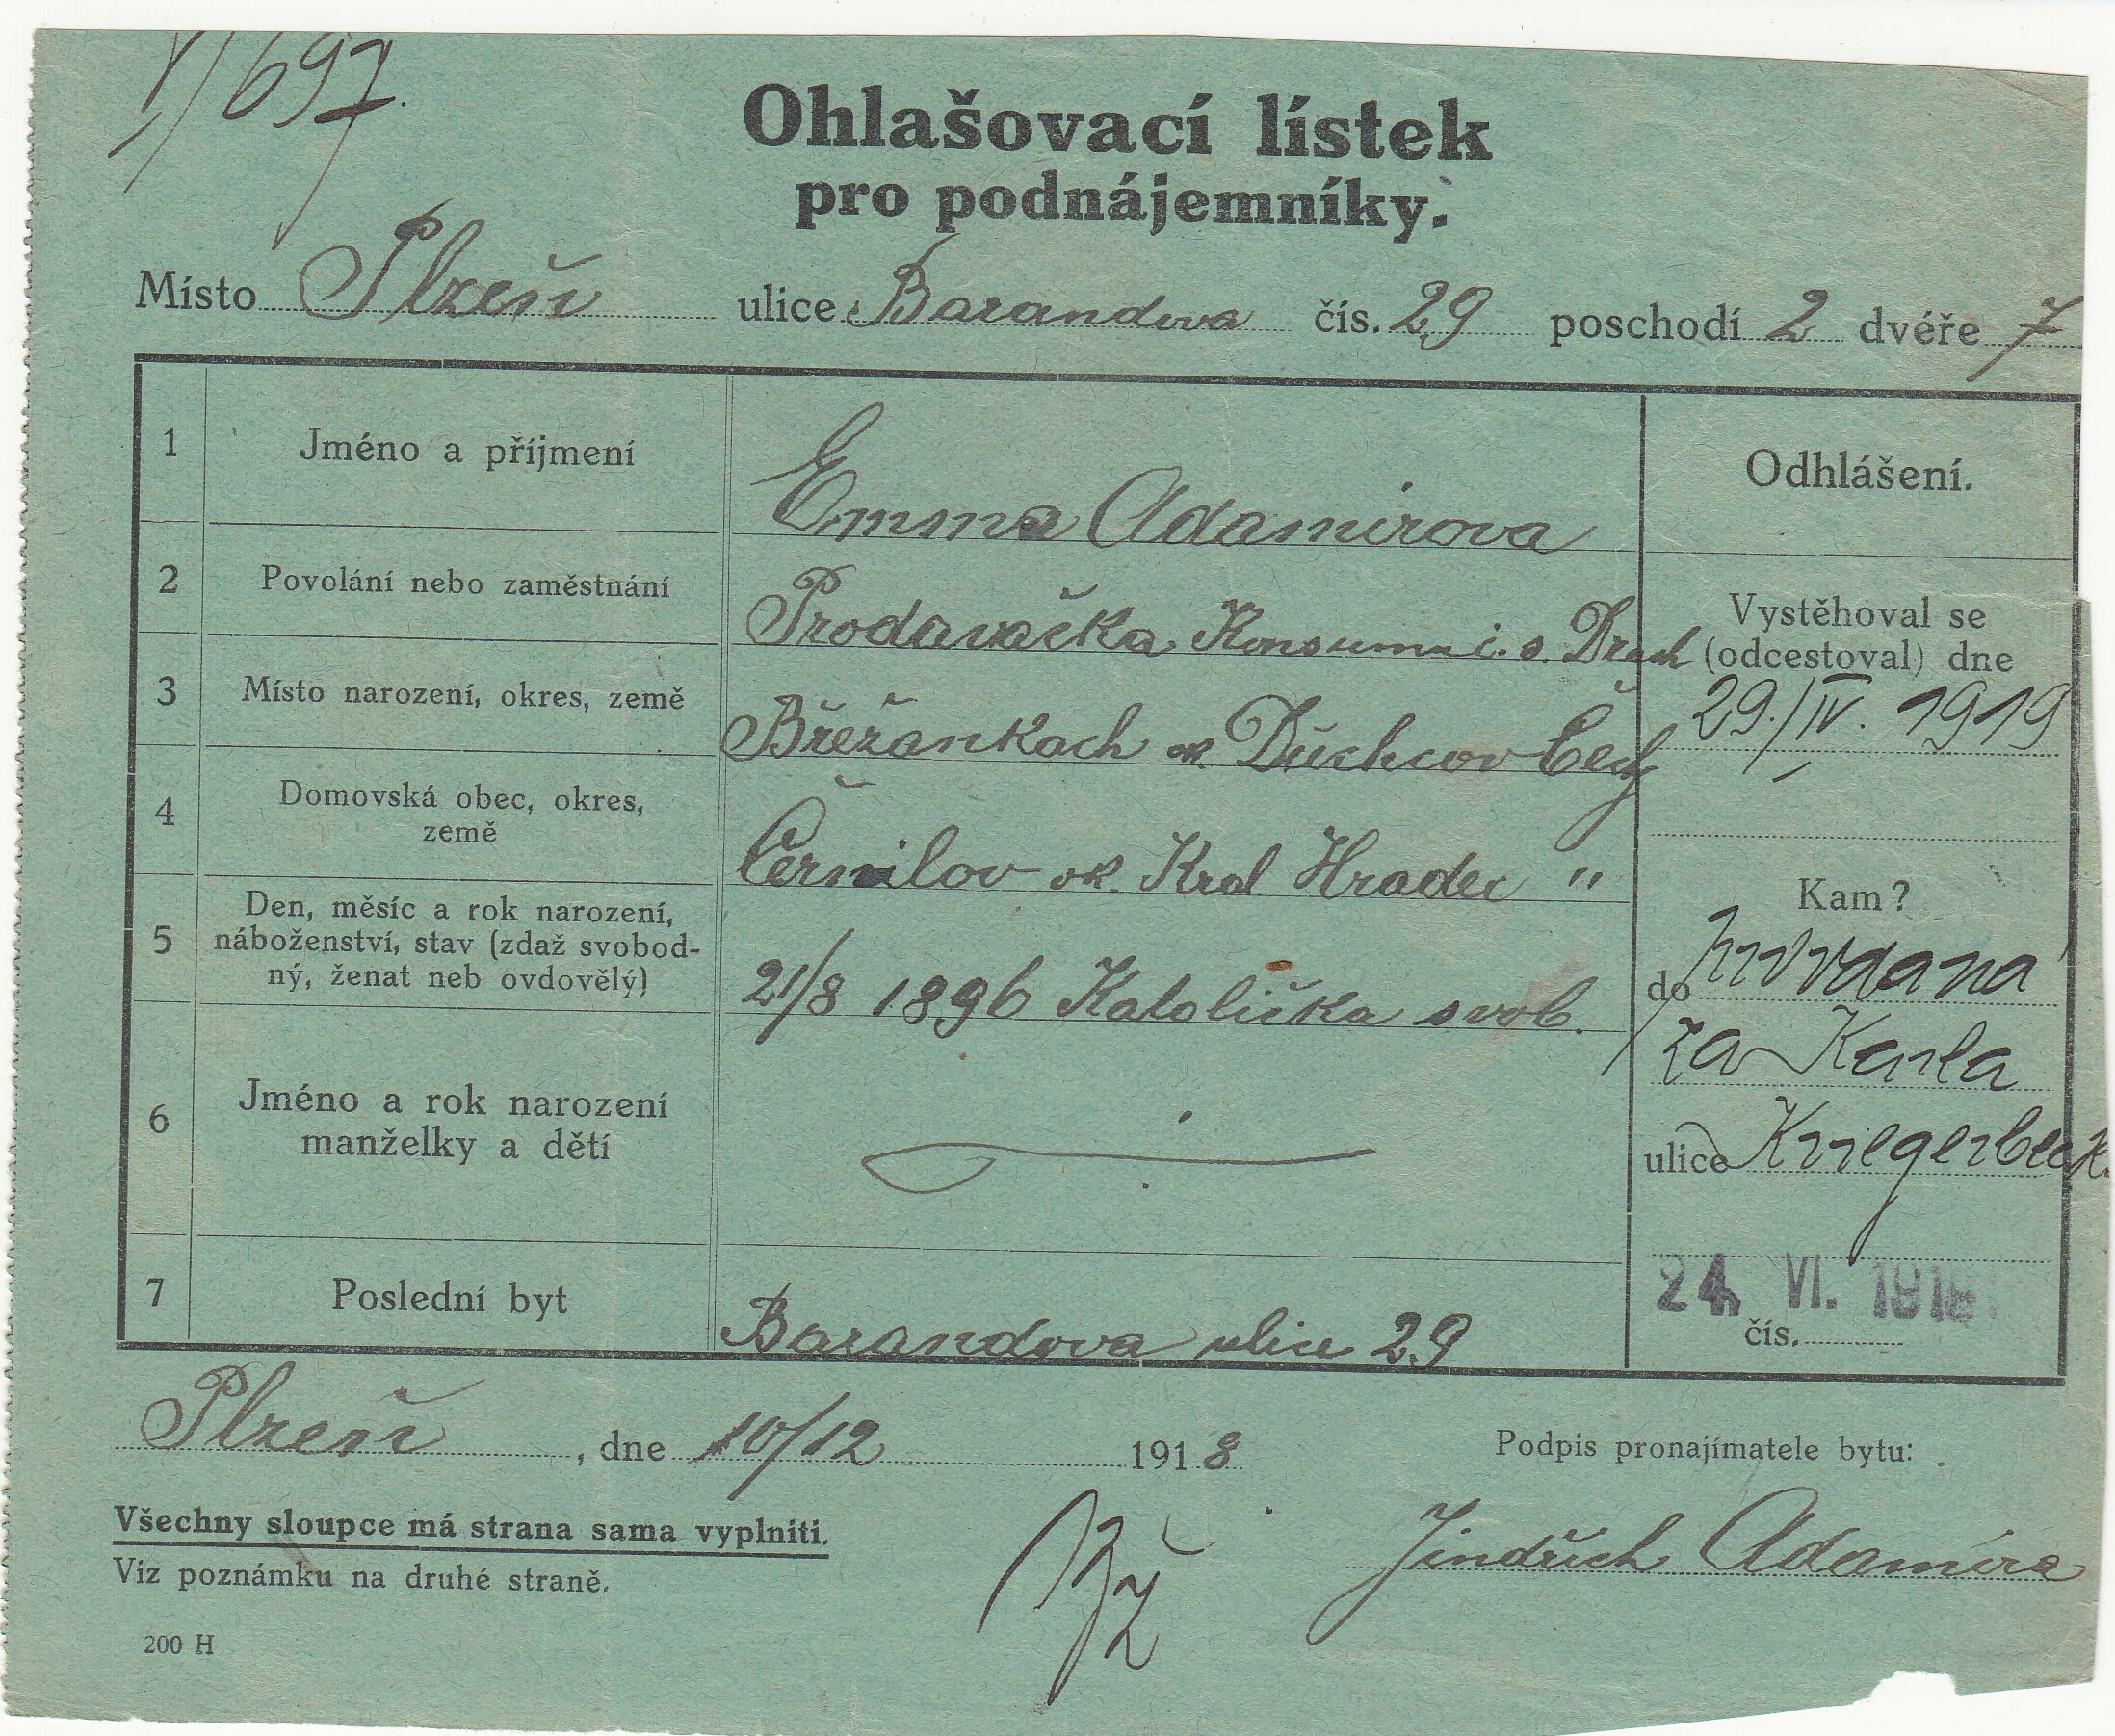 1/697.
Ohlašovací lístek
pro podnájemníky.
Místo Plzeň ulice Barandova čís. 29 poschodí 2 dvéře 7
1 Jméno a příjmení Emma Adamirova Odhlášení.
2 Povolání nebo zaměstnání Prodavačka Konsum i. s. Vystěhoval se
(odcestoval) dne
3 Místo narození, okres, země Břežánkach ok. Duchcov Čechy 29./IV. 1919
4 Domovská obec, okres,
země Černilov ok. Kral Hradec "
Kam?
5 Den, měsíc a rok narození,
náboženství, stav (zdaž svobod-
ný, ženat neb ovdovělý) 21/8 1896 Katolička svob. do provdaná
za Karla
6 Jméno a rok narození
manželky a dětí ulice
24. VI. 191
7 Poslední byt Barandova ulice 29 čís.
Plzeň, dne 10/12 1918
Podpis pronajímatele bytu:
Všechny sloupce má strana sama vyplniti.
Jindřich Adamira
Viz poznámku na druhé straně.
200 H